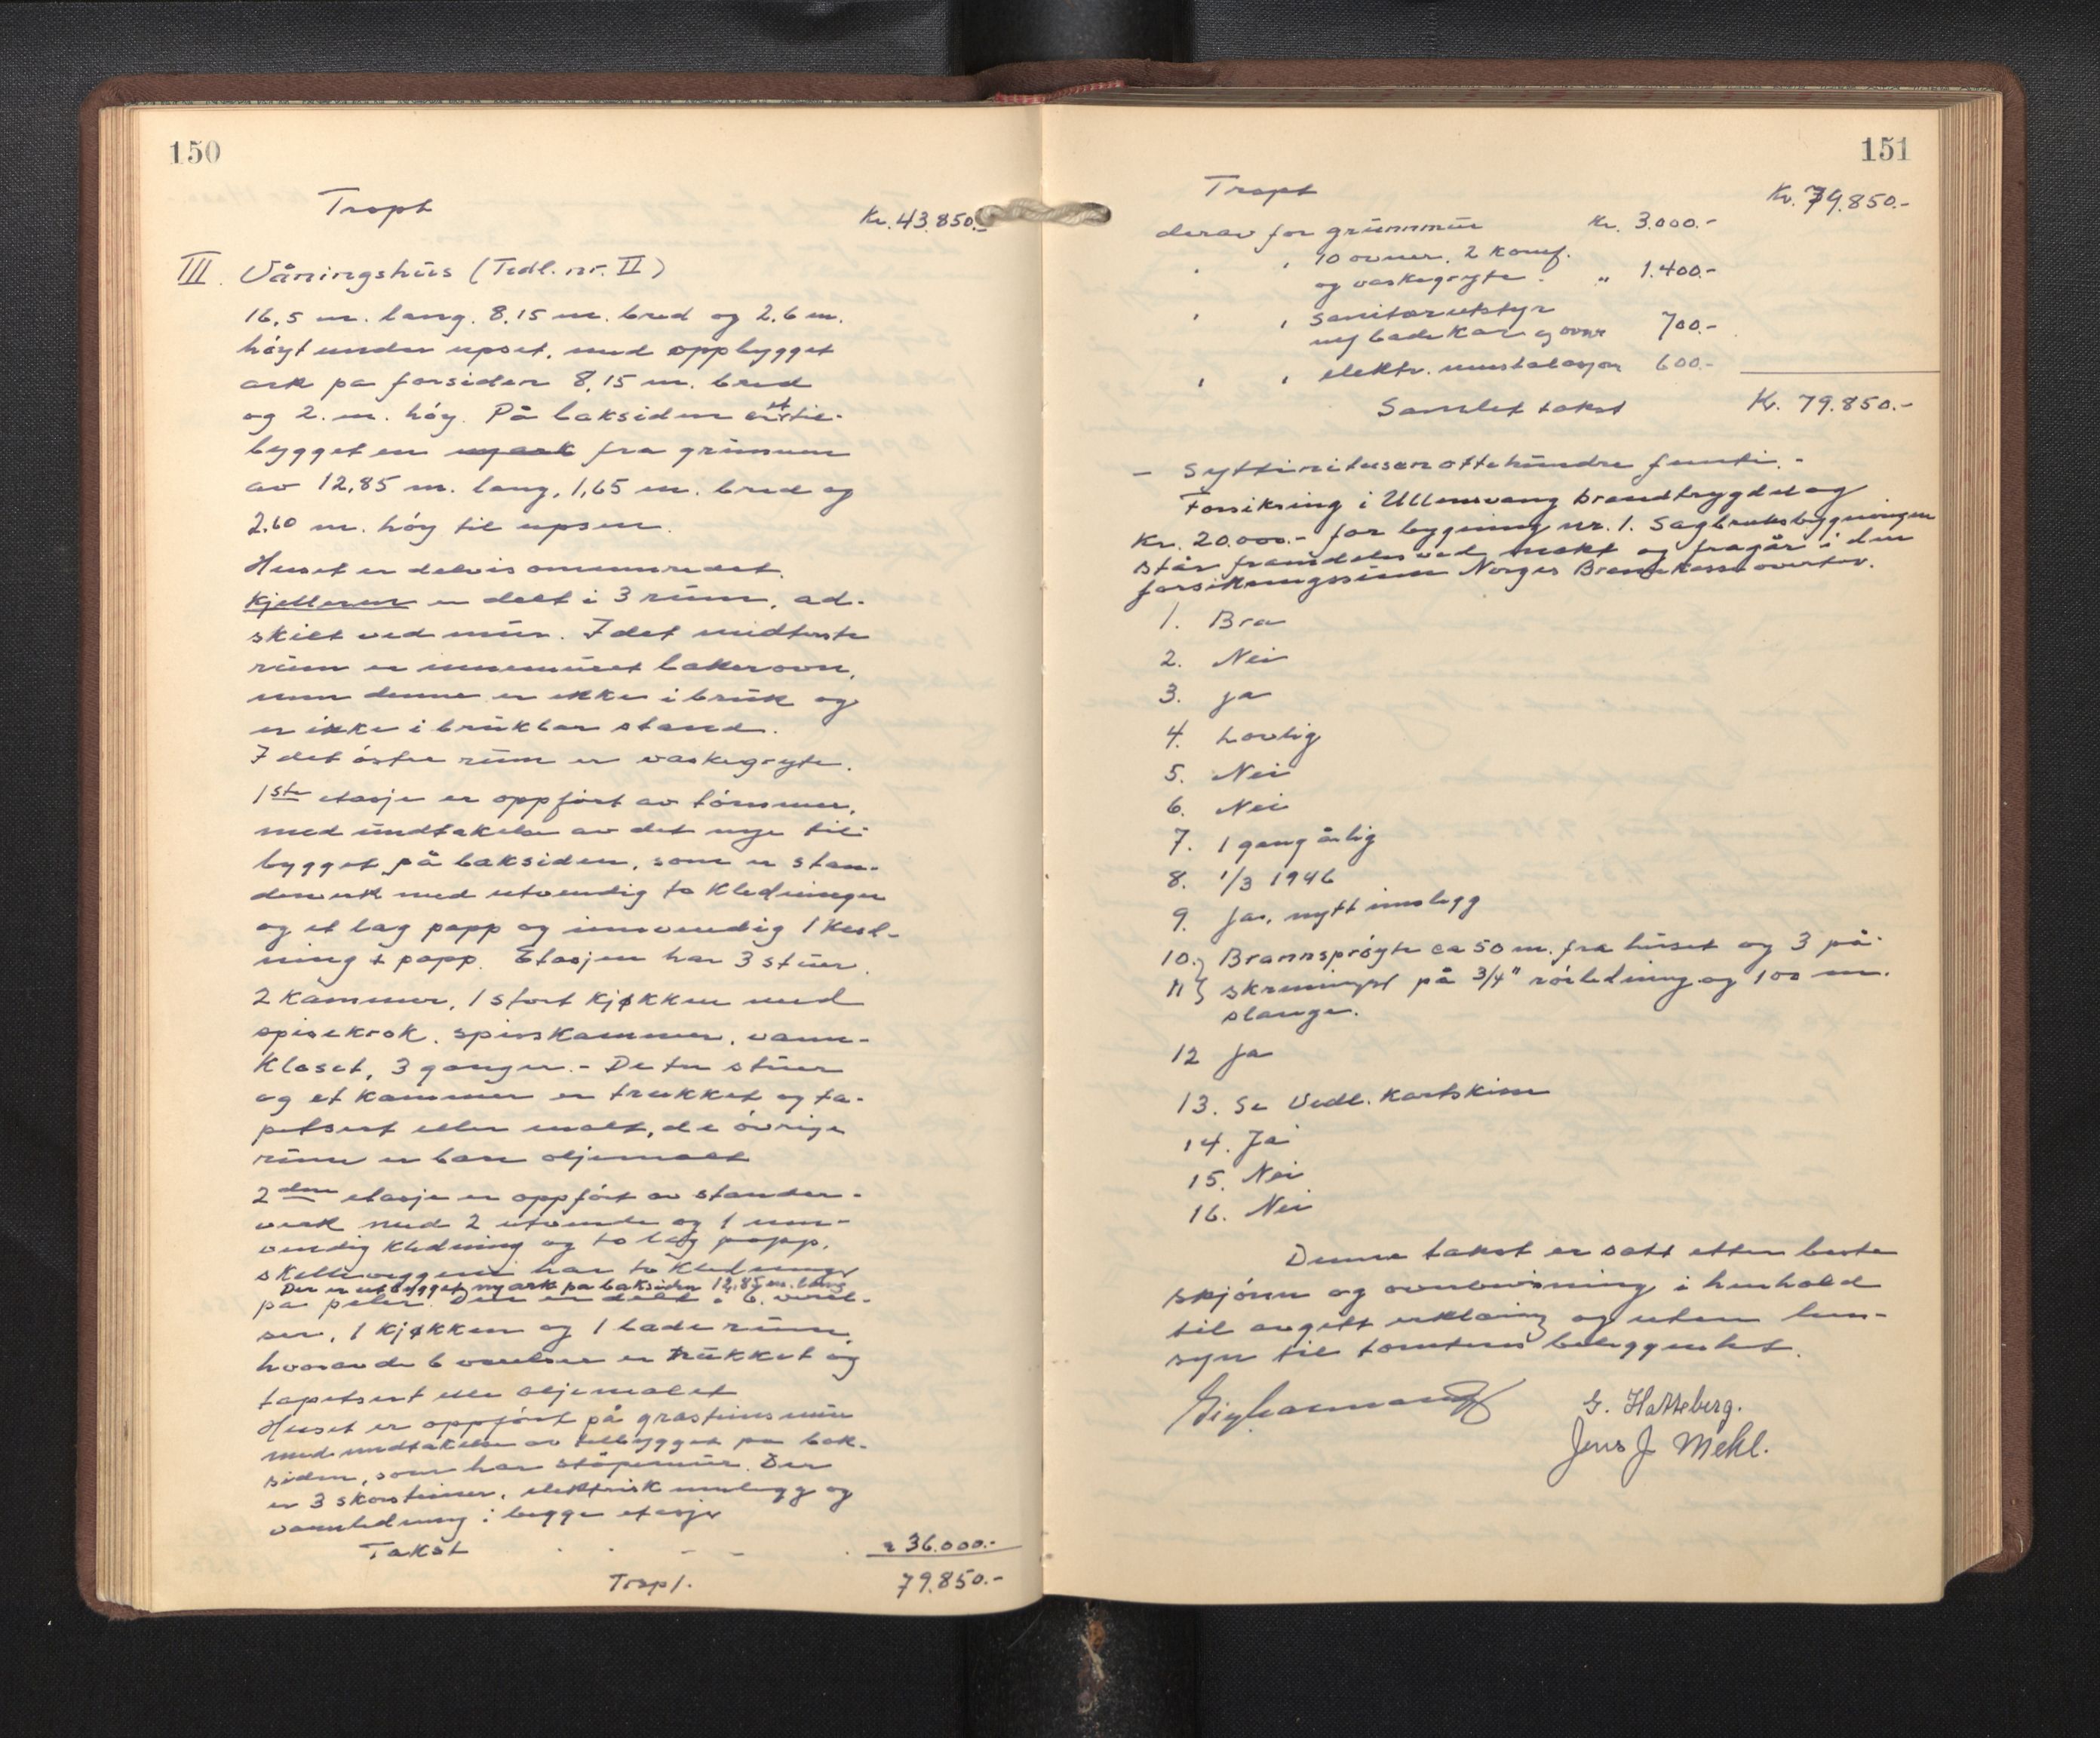 150
Trspt Kr. 43.850.-
III. Våningshus (Tidl. nr. II)
16,5 m. lang. 8,15 m. bred og 2,6 m.
høyt under upset, med oppbygget
ark på forsiden 8,15 m. bred
og 2. m. høy. På baksiden er et til-
bygget en ny ark fra grunnen
av 12,85 m. lang, 1,65 m. bred og
2,60 m. høy til upsen.
Huset er delvis ominnredet.
Kjelleren er delt i 3 rum, ad-
skilt ved mur. I det midterste
rum er innemuret bakerovn,
men denne er ikke i bruk og
er ikke i brukbar stand.
I det østre rum er vaskegryte.
1ste etasje er oppført av tømmer,
med undtakelse av det nye til-
bygget på baksiden, som er stan-
derverk med utvendig to kledninger
og et lag papp og innvendig 1 kled-
ning + papp. Etasjen har 3 stuer,
2 kammer, 1 stort kjøkken med
spisekrok, spiskammer, vann-
kloset, 3 ganger. - De tre stuer
og et kammer er trukket og ta-
petsert eller malt, de øvrige
rum er bare oljemalt
2den etasje er oppført av stander-
verk med 2 utvendig og 1 inn-
vendig kledning og to lag papp.
skilleveggene har to kledninger
Der er utbygget ny ark på baksiden 12,85 m. lang
på peler. Den er delt i 6. værel-
ser, 1 kjøkken og 1 baderum,
hvorav de 6 værelser er trukket og
tapetsert eller oljemalet
Huset er oppført på gråsteinsmur
med undtakelse av tilbygget på bak-
siden, som har støpemur. Der
er 3 skorsteiner, elektrisk innlegg og
vannledning i begge etasjer
Takst . . - - . " 36.000.-
Trspt. 79.850.-
151
Trspt Kr. 79.850.-
derav for grunnmur Kr. 3.000.-
" " 10 ovner, 2 komf.
og vaskegryte . " 1.400.-
" " Sanitærutstyr
m/ badekar og ovner 700.-
" " elektr. innstalasjon 600.-
Samlet takst Kr. 79.850.-
- Syttinitusenottehundre femti. -
Forsikring i Ullensvang Brandtrygdelag
Kr. 20.000.- for bygning nr. 1. Sagbruksbygningen
står fremdeles ved makt og fragår i den
forsikringssum Norges Brannkasse overtar.
1. Bra
2. Nei
3. ja
4. Lovlig
5. Nei
6. Nei
7. 1 gang årlig
8. 1/3 1946
9. Ja, nytt innlegg
10.} Brannsprøyte ca 50 m. fra huset og 3 på-
11} skruningst på 3/4" rørledning og 100 m.
slange.
12 Ja
13. Se Vedl. Kartskisse
14. Ja
15. Nei
16. Nei
Denne takst er satt etter beste
skjønn og overbevisning i henhold
til avgitt erklæring og uten hen-
syn til tomtens beliggenhet.
G. Hatteberg.
Jens J. Mehl.